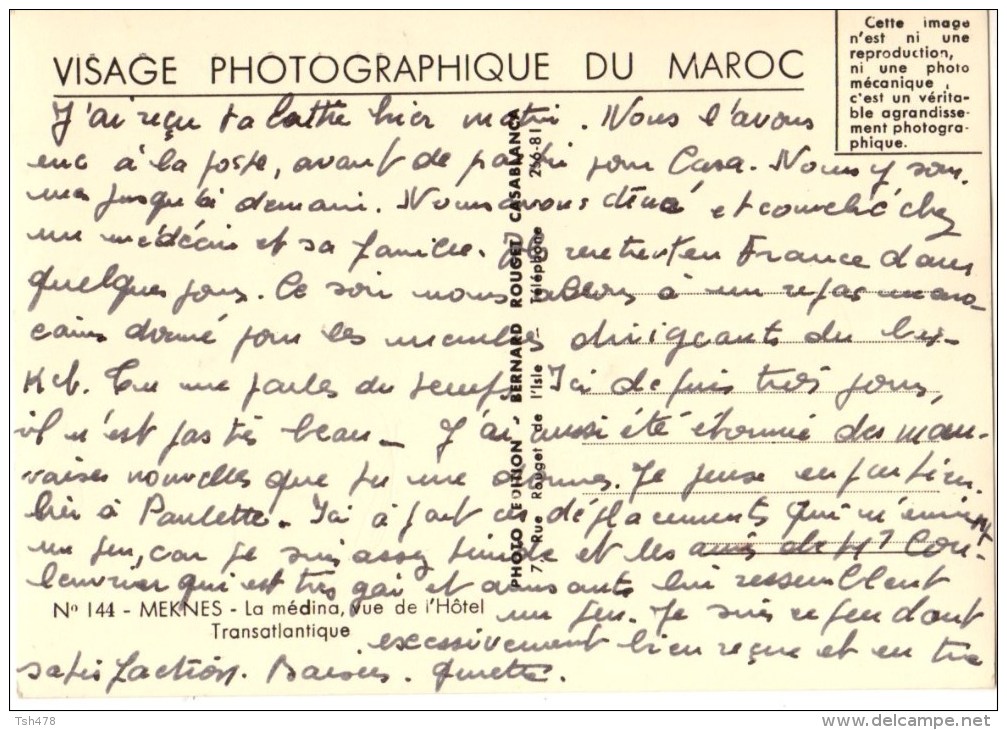 Cette image
n'est ni une
reproduction,
ni une photo
mécanique,
c'est un vérita-
ble agrandisse-
ment photogra-
phique.
VISAGE PHOTOGRAPHIQUE DU MAROC
J'ai reçu ta lettre hier matin. Nous l'avons
eue à la poste, avant de partir pour Casa. Nous y som.
mes jusqu'à demain. Nous avons dîné et couché chez
un médecin et sa famille. Ils rentrent en France dans
quelques jours. Ce soir nous allons à un repas maro-
cains donné pour les membres dirigeants du
Tu me parles du temps. Ici depuis trois jours,
il n'est pas très beau - J'ai aussi été étonnée des mau-
vaises nouvelles que tu me donnes. Je pense en particu.
lier à Paulette. Ici à part ces déplacements qui m'ennuient
un peu, car je suis assez timide et les amis de Mr Cou-
louvrier qui est très gai et amusants lui ressemblent
un peu. Je suis cependant
excessivement bien reçue et en
satisfaction. Baisers.
PHOTO EDITION - BERNARD ROUGET CASABLANCA
7, Rue Rouget de l'Isle - Téléphone 256-81
Nº 144 - MEKNES - La médina, vue de l'Hôtel
Transatlantique
Tsh478
www.delcampe.net